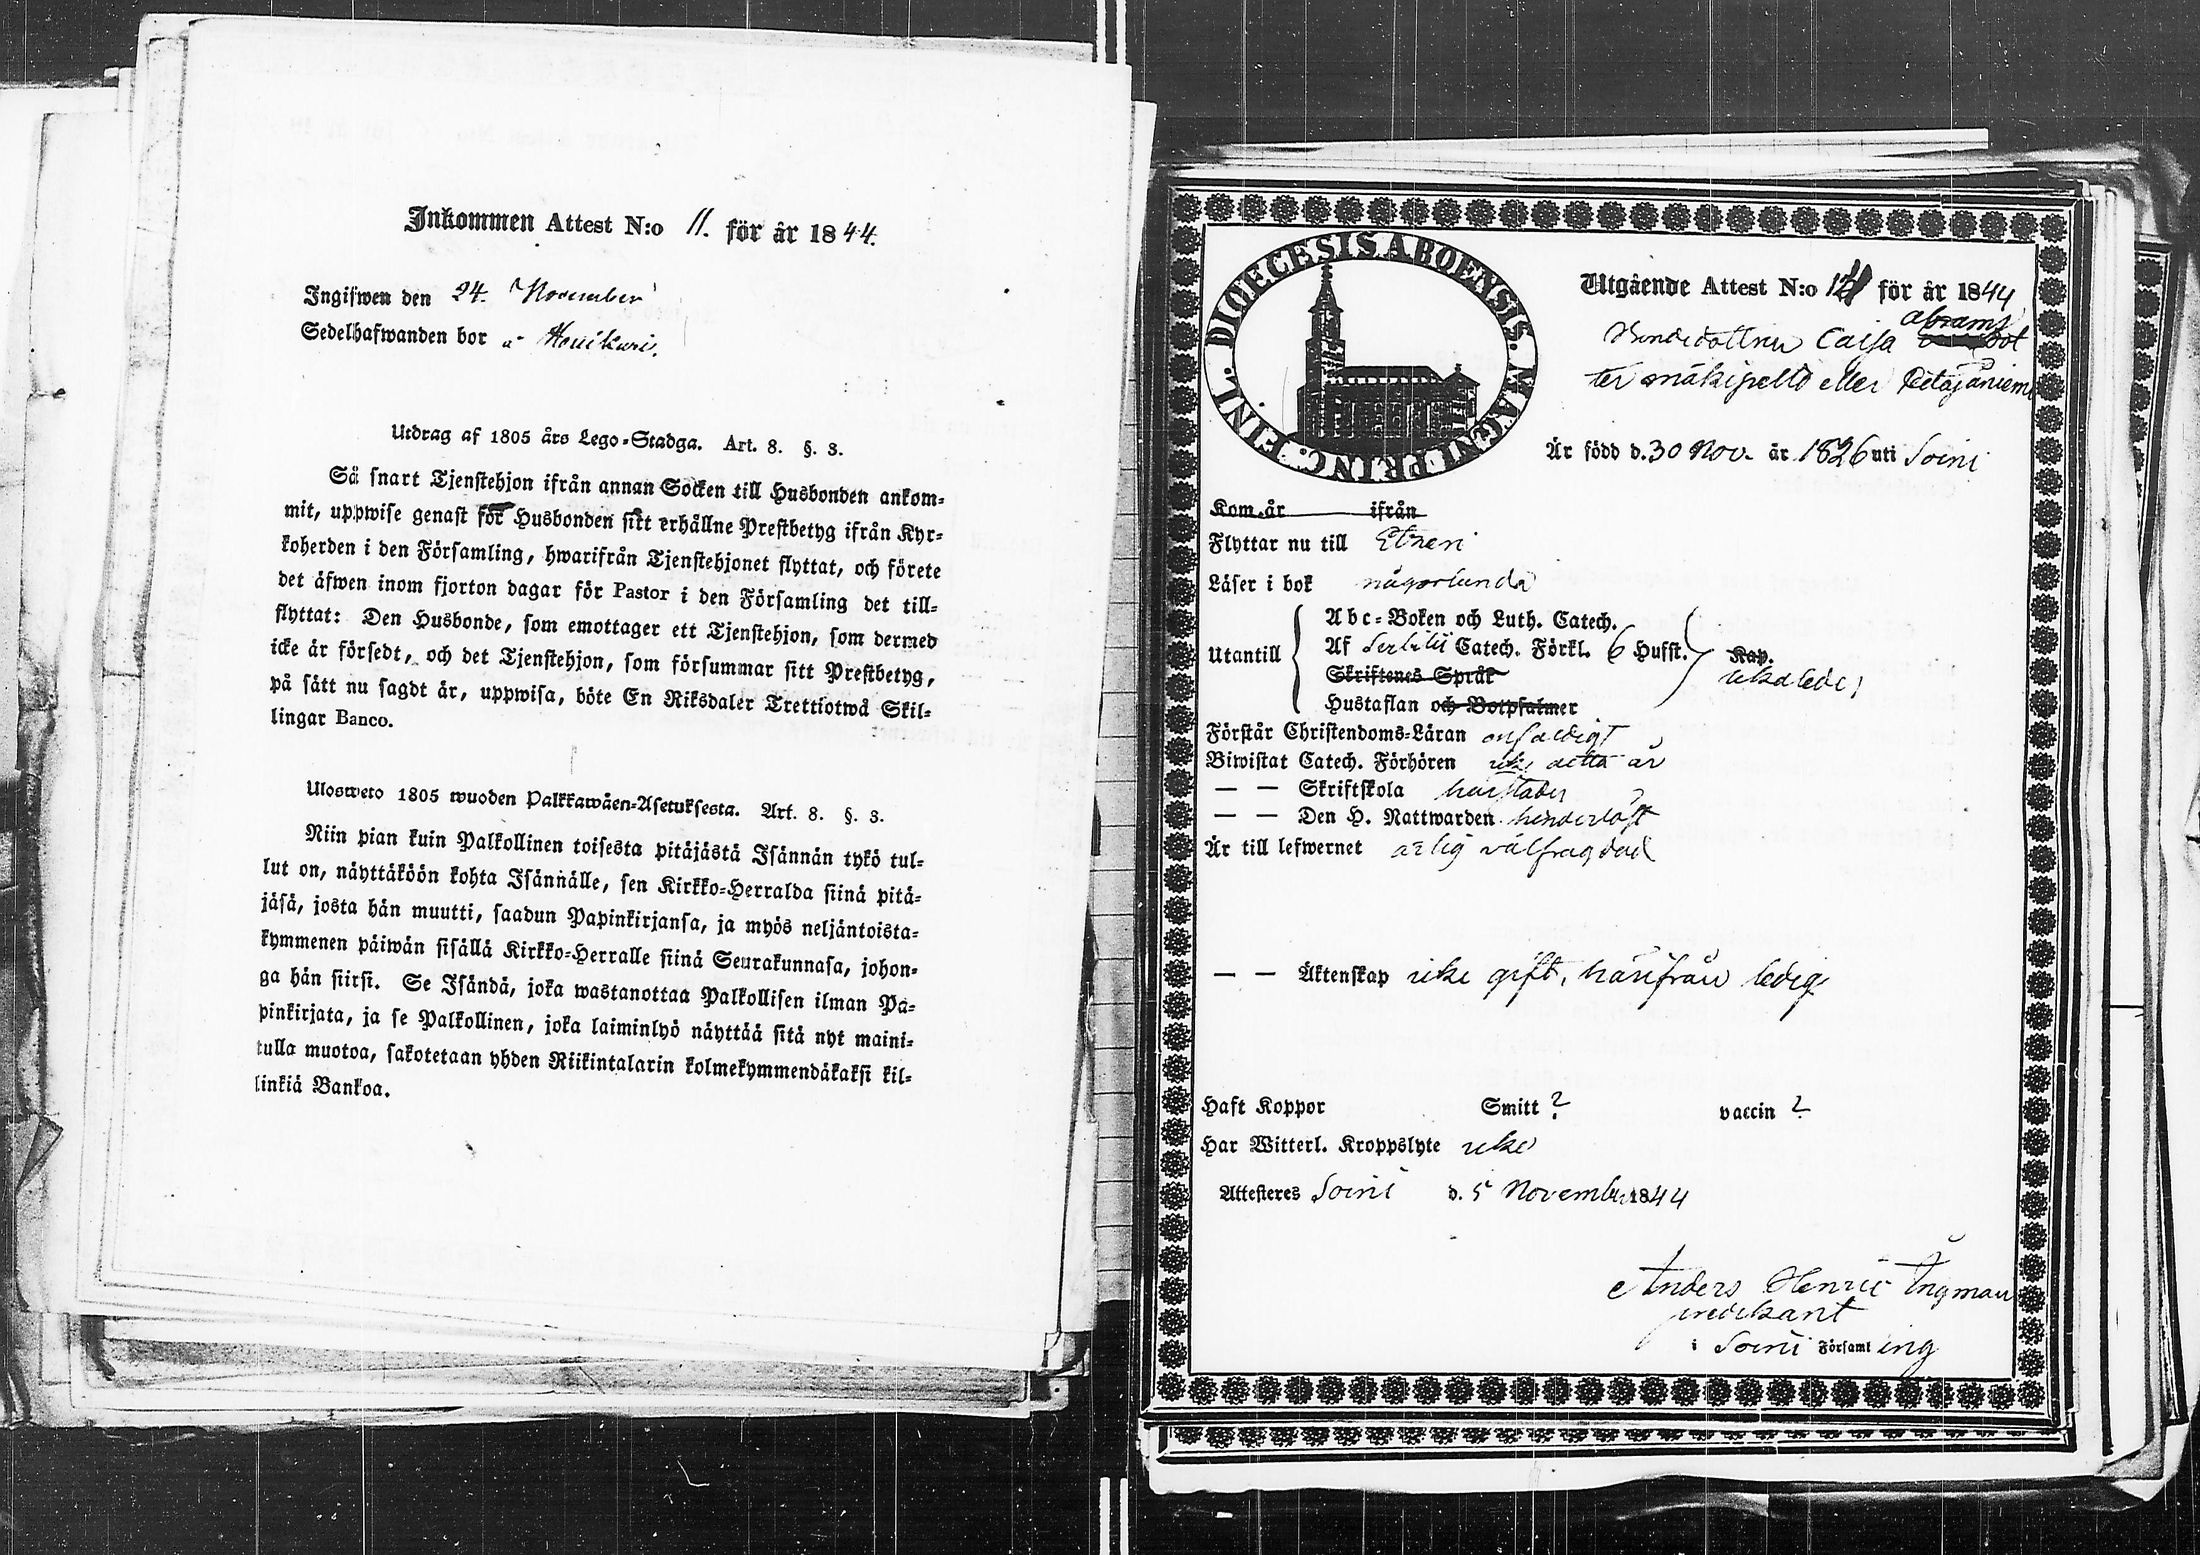 Inkommen Attest N:o 11. för år 1844.
Ingifwen den 24. November
Sedelhafwanden bor å
Utdrag af 1805 års Lego-Stadga. Art. 8. §. 3.
Så snart Tjenstehjon ifrån annan Socken till Husbonden ankom-
mit, uppwise genast för Husbonden sitt erhållne Prestbetyg ifrån Kyr-
koherden i den Församling, hwarifrån Tjenstehjonet flyttat, och förete
det äfwen inom fjorton dagar för Pastor i den Församling det till-
flyttat: Den Husbonde, som emottager ett Tjenstehjon, som dermed
icke är försedt, och det Tjenstehjon, som försummar sitt Prestbetyg,
på sätt nu sagdt är, uppwisa, böte En Riksdaler Trettiotwå Skil-
lingar Banco.
Ulosweto 1805 wuoden Palkkawäen-Asetuksesta. Art. 8. §. 3.
Niin pian kuin Palkollinen toisesta pitäjästä Isännän tykö tul-
lut on, näyttäköön kohta Isännälle, sen Kirkko-Herralda siinä pitä-
jäsä, josta hän muutti, saadun Papinkirjansa, ja myös neljäntoista-
kymmenen päiwän sisällä Kirkko-Herralle siinä Seurakunnasa, johon-
ga hän siirsi. Se Isändä, joka wastanottaa Palkollisen ilman Pa-
pinkirjata, ja se Palkollinen, joka laiminlyö näyttää sitä nyt maini-
tulla muotoa, sakotetaan yhden Riikintalarin kolmekymmendäkaksi kil-
linkiä Bankoa.
DIOECESIS ABOENSIS. MAGNI PRINC. FINL.
Utgående Attest N:o för år 1844
Abrams
Bondedottren Caisa dot
ter Mäkipelto eller
Är född d. 30 Nov. år 1826 uti Soini
Kom år ifrån
Flyttar nu till Etseri
Läser i bok någorlunda
Utantill
Abc-Boken och Luth. Catech.
Af Catech. Förkl. 6 Hufst. Kap.
Skriftenes Språk
Hustaflan och Botpsalmer
Förstår Christendoms-Läran enfaldigt
Biwistat Catech. Förhören icke detta år
— — Skriftskola
— — Den H. Nattwarden hinderlöst
Är till lefwernet ärlig välfrägdad
— — Äktenskap icke gift, härifrån ledig
Haft Koppor Smitt ? vaccin ?
Har Witterl. Kroppslyte icke
Attesteres Soini d. 5 November 1844
Anders Henric Ingman
predikant
i Soini Församling